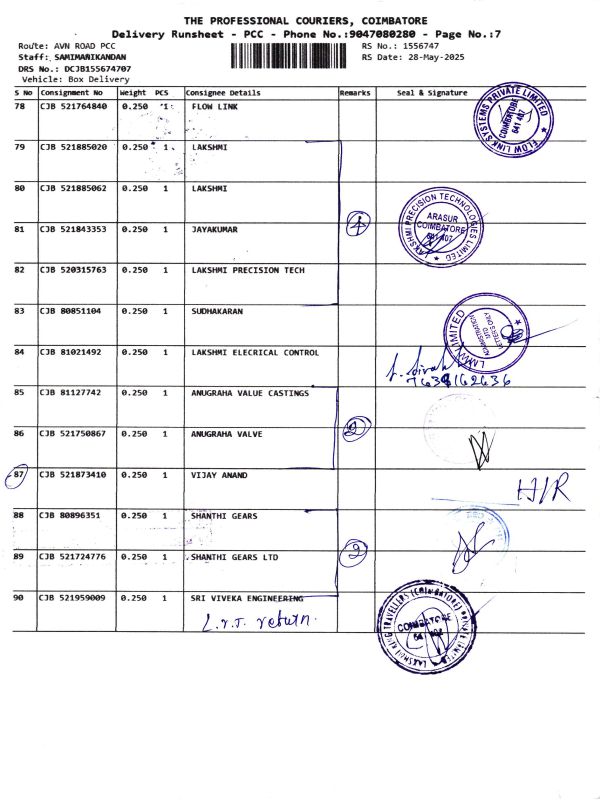 THE PROFESSIONAL COURIERS, COIMBATORE
Delivery Runsheet - PCC - Phone No.:9047080280 - Page No.:7
Route: AVN ROAD PCC
RS No.: 1556747
Staff: SAMIMANIKANDAN
RS Date: 28-May-2025
DRS No.: DCJB155674707
Vehicle: Box Delivery
S No Consignment No Weight PCS Consignee Details Remarks Seal & Signature
78 CJB 521764840 0.250 1 FLOW LINK
FLOW LINK SYSTEMS PRIVATE LIMITED
COIMBATORE
641 407
79 CJB 521885020 0.250 1 LAKSHMI
80 CJB 521885062 0.250 1 LAKSHMI
LAKSHMI PRECISION TECHNOLOGIES LIMITED
ARASUR
COIMBATORE
641 407
81 CJB 521843353 0.250 1 JAYAKUMAR 4
82 CJB 520315763 0.250 1 LAKSHMI PRECISION TECH
83 CJB 80851104 0.250 1 SUDHAKARAN
LIMITED
ADMINISTRATION
LETTERS ONLY
84 CJB 81021492 0.250 1 LAKSHMI ELECRICAL CONTROL
85 CJB 81127742 0.250 1 ANUGRAHA VALUE CASTINGS
86 CJB 521750867 0.250 1 ANUGRAHA VALVE 2
87 CJB 521873410 0.250 1 VIJAY ANAND
H/R
88 CJB 80896351 0.250 1 SHANTHI GEARS
89 CJB 521724776 0.250 1 SHANTHI GEARS LTD 2
90 CJB 521959009 0.250 1 SRI VIVEKA ENGINEERING
L.R.T. return.
LAKSHMI RING TRAVELLERS (COIMBATORE) PRIVATE LIMITED
COIMBATORE